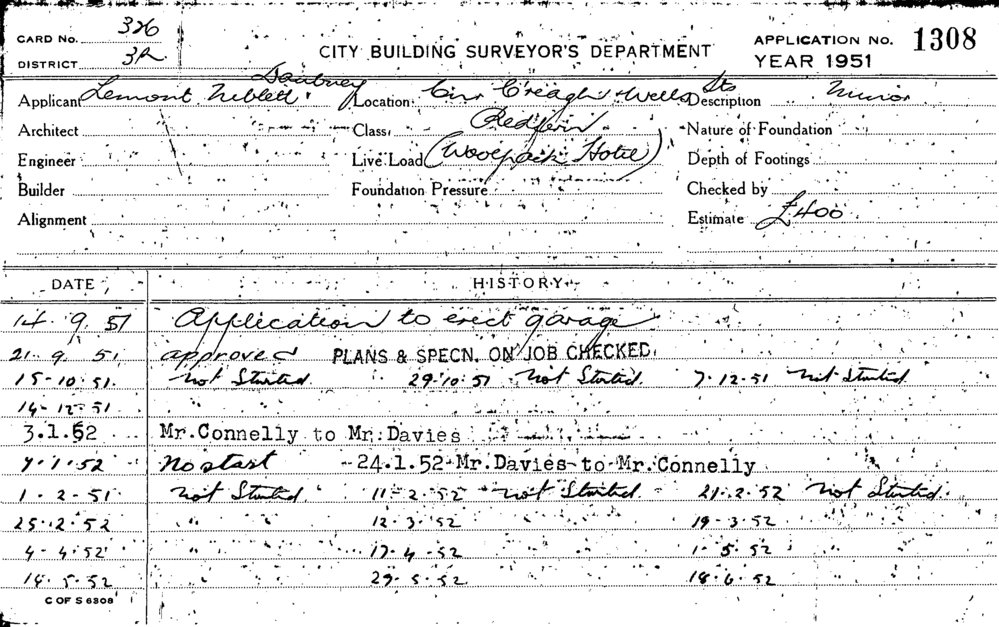 CARD No. 326
DISTRICT 3A
CITY BUILDING SURVEYOR'S DEPARTMENT
APPLICATION No. 1308
YEAR 1951
Daubney
Applicant Lemont Neblett Location Cnr Creagh & Wells Sts Description Minor
Architect Class Redfern Nature of Foundation
Engineer Live Load (Woolpack Hotel) Depth of Footings
Builder Foundation Pressure Checked by
Alignment Estimate £400
DATE HISTORY
14. 9. 51 Application to erect garage
21. 9. 51 approved PLANS & SPECN. ON JOB CHECKED.
15-10.51. Not Started. 29.10.51 Not Started. 7.12.51 Not Started.
14-12.51 " "
3.1.52 Mr.Connelly to Mr.Davies
7.1.52 No start -24.1.52-Mr.Davies-to-Mr.Connelly
1-2-51 Not Started 11-2.52 Not Started. 21.2.52 Not Started.
25.2.52 " " 12.3.52 19-3.52
4-4.52 " " 17-4-52 1.5.52
14.5.52 29.5.52 18.6.52
C OF S 6308